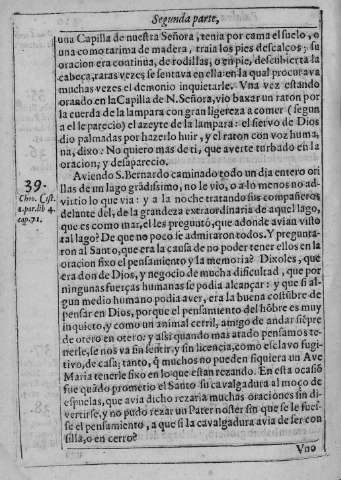 Segunda parte,
una Capilla de nuestra Señora, tenia por cama el suelo, o
una como tarima de madera, traia los pies descalços; su
oracion era continua, de rodillas, o en pie, descubierta la
cabeça, raras vezes se sentava en ella: en la qual procurava
muchas vezes el demonio inquietarle. Vna vez estando
orando en la Capilla de N. Señora, vio baxar un raton por
la cuerda de la lampara con gran ligereza a comer (segun
a el le parecio) el azeyte de la lampara: el siervo de Dios
dio palmadas por hazerlo huir, y el raton con voz huma
na, dixo: No quiero mas de ti, que averte turbado en la
oracion; y desaparecio.
39.
Chro. Cist.
2. par. lib 4.
cap. 71.
Aviendo S. Bernardo caminado todo un dia entero ori
llas de un lago grãdissimo, no le vio, o a lo menos no ad-
virtio lo que via: y a la noche tratando sus compañeros
delante del, de la grandeza extraordinaria de aquel lago,
que es como mar, el les preguntó, que adonde avian visto
tal lago? De que no poco se admiraron todos. Y pregunta-
ron al Santo, que era la causa de no poder tener ellos en la
oracion fixo el pensamiento y la memoria? Dixoles, que
era don de Dios, y negocio de mucha dificultad, que por
ningunas fuerças humanas se podia alcançar: y que si al-
gun medio humano podia aver, era la buena costũbre de
pensar en Dios, porque el pensamiento del hõbre es muy
inquieto, y como un animal cerril, amigo de andar siẽpre
de otero en otero: y assi quando mas atado pensamos te-
nerle, se nos va sin sentir, y sin licencia, como esclavo fugi-
tivo, de casa; tanto, q̃ muchos no pueden siquiera un Ave
Maria tenerle fixo en lo que estan rezando. En esta ocasiõ
fue quãdo prometio el Santo su cavalgadura al moço de
espuelas, que avia dicho rezaria muchas oraciones sin di-
vertirse, y no pudo rezar un Pater noster sin que se le fues-
se el pensamiento, a que si la cavalgadura avia de ser con
silla, o en cerro?
Vno